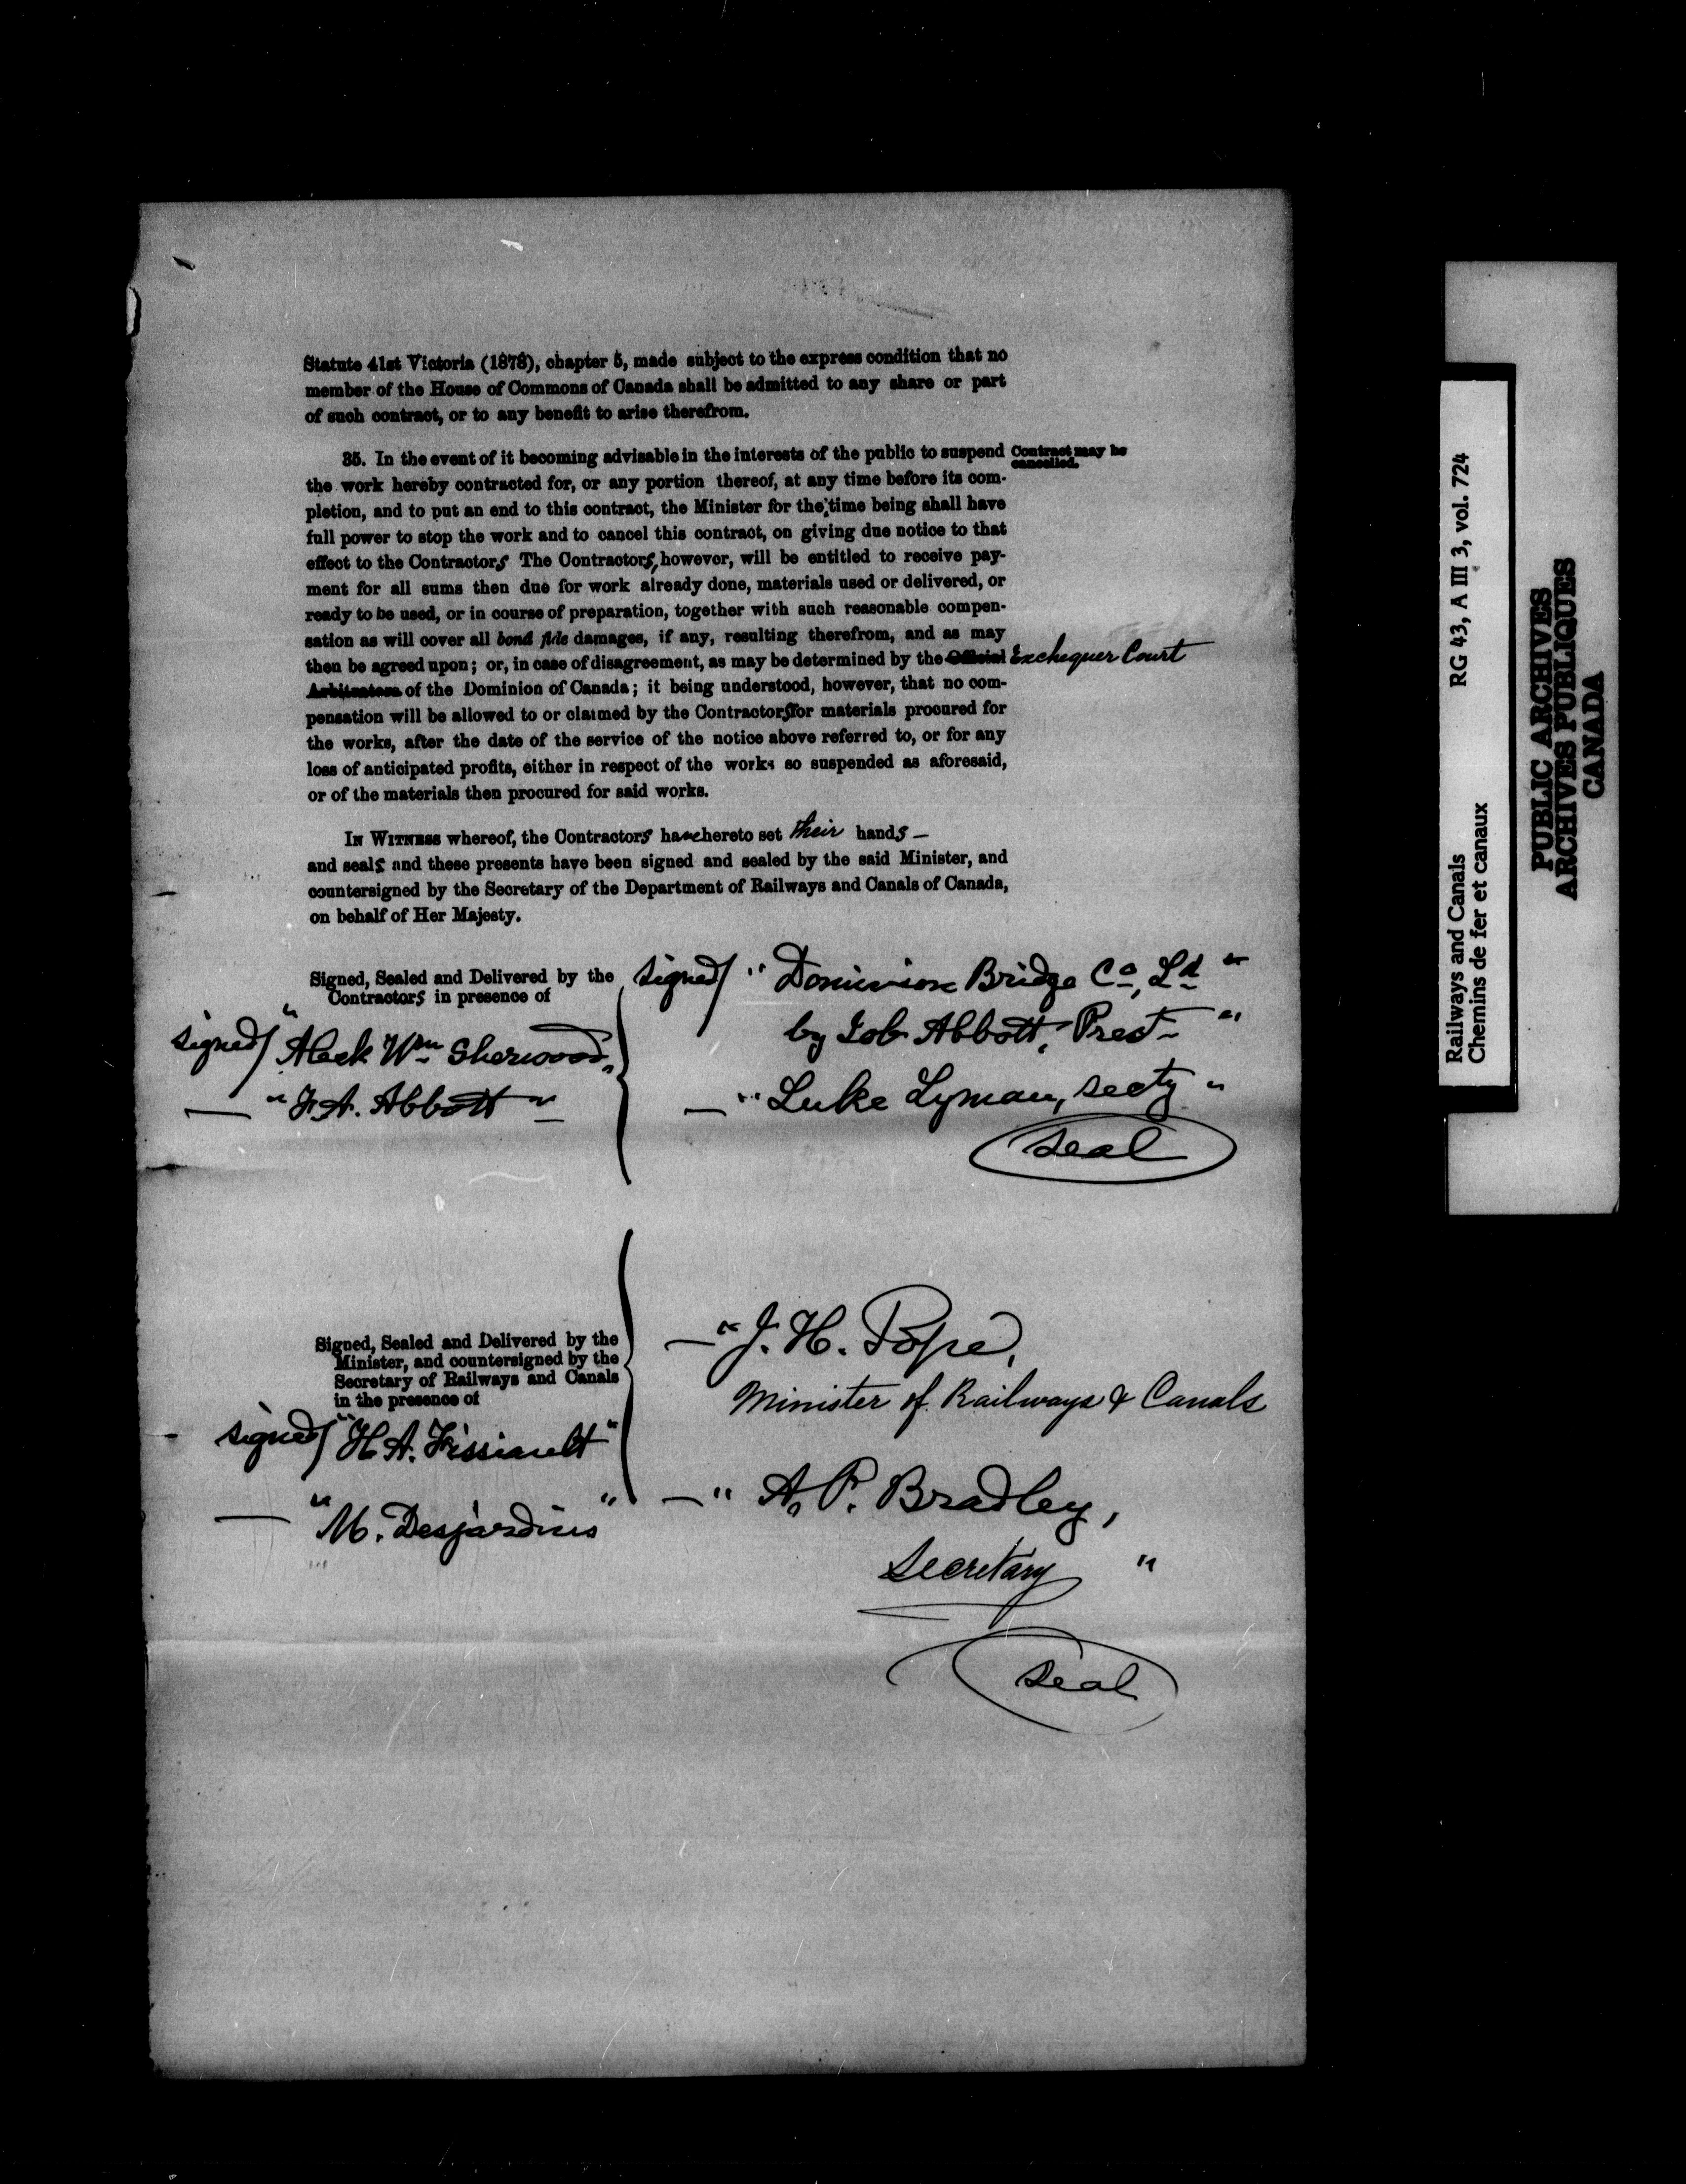 Statute 41st Victoria (1878), chapter 5, made subject to the express condition that no
member of the House of Commons of Canada shall be admitted to any share or part
of such contract, or to any benefit to arise therefrom.
35. In the event of it becoming advisable in the interests of the public to suspend
Contract may be
cancelled.
the work hereby contracted for, or any portion thereof, at any time before its com-
pletion, and to put an end to this contract, the Minister for the time being shall have
full power to stop the work and to cancel this contract, on giving due notice to that
effect to the Contractors The Contractors, however, will be entitled to receive pay-
ment for all sums then due for work already done, materials used or delivered, or
ready to be used, or in course of preparation, together with such reasonable compen-
sation as will cover all bonâ fide damages, if any, resulting therefrom, and as may
then be agreed upon; or, in case of disagreement, as may be determined by the Official Exchequer Court
Arbitrators of the Dominion of Canada; it being understood, however, that no com-
pensation will be allowed to or claimed by the Contractors for materials procured for
the works, after the date of the service of the notice above referred to, or for any
loss of anticipated profits, either in respect of the works so suspended as aforesaid,
or of the materials then procured for said works.
IN WITNESS whereof, the Contractors have hereto set their hands —
and seals and these presents have been signed and sealed by the said Minister, and
countersigned by the Secretary of the Department of Railways and Canals of Canada,
on behalf of Her Majesty.
Signed, Sealed and Delivered by the
Contractors in presence of
signed/ "Aleck Wm Sherwood"
— "F. A. Abbott"
signed/ "Dominion Bridge Co, Ld"
by Job Abbott, Prest"
— "Luke Lyman, secty"
seal
Signed, Sealed and Delivered by the
Minister, and countersigned by the
Secretary of Railways and Canals
in the presence of
signed/ "H. A. Fissiault"
— "M. Desjardins"
— "J. H. Pope,
Minister of Railways & Canals
— "A. P. Bradley,
Secretary "
seal
Railways and Canals RG 43, A III 3, vol. 724
Chemins de fer et canaux
PUBLIC ARCHIVES
ARCHIVES PUBLIQUES
CANADA